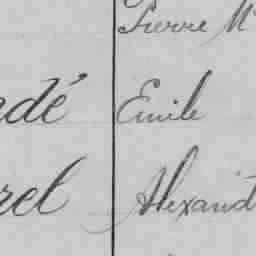 Pierre M
dé Emile
rel Alexand